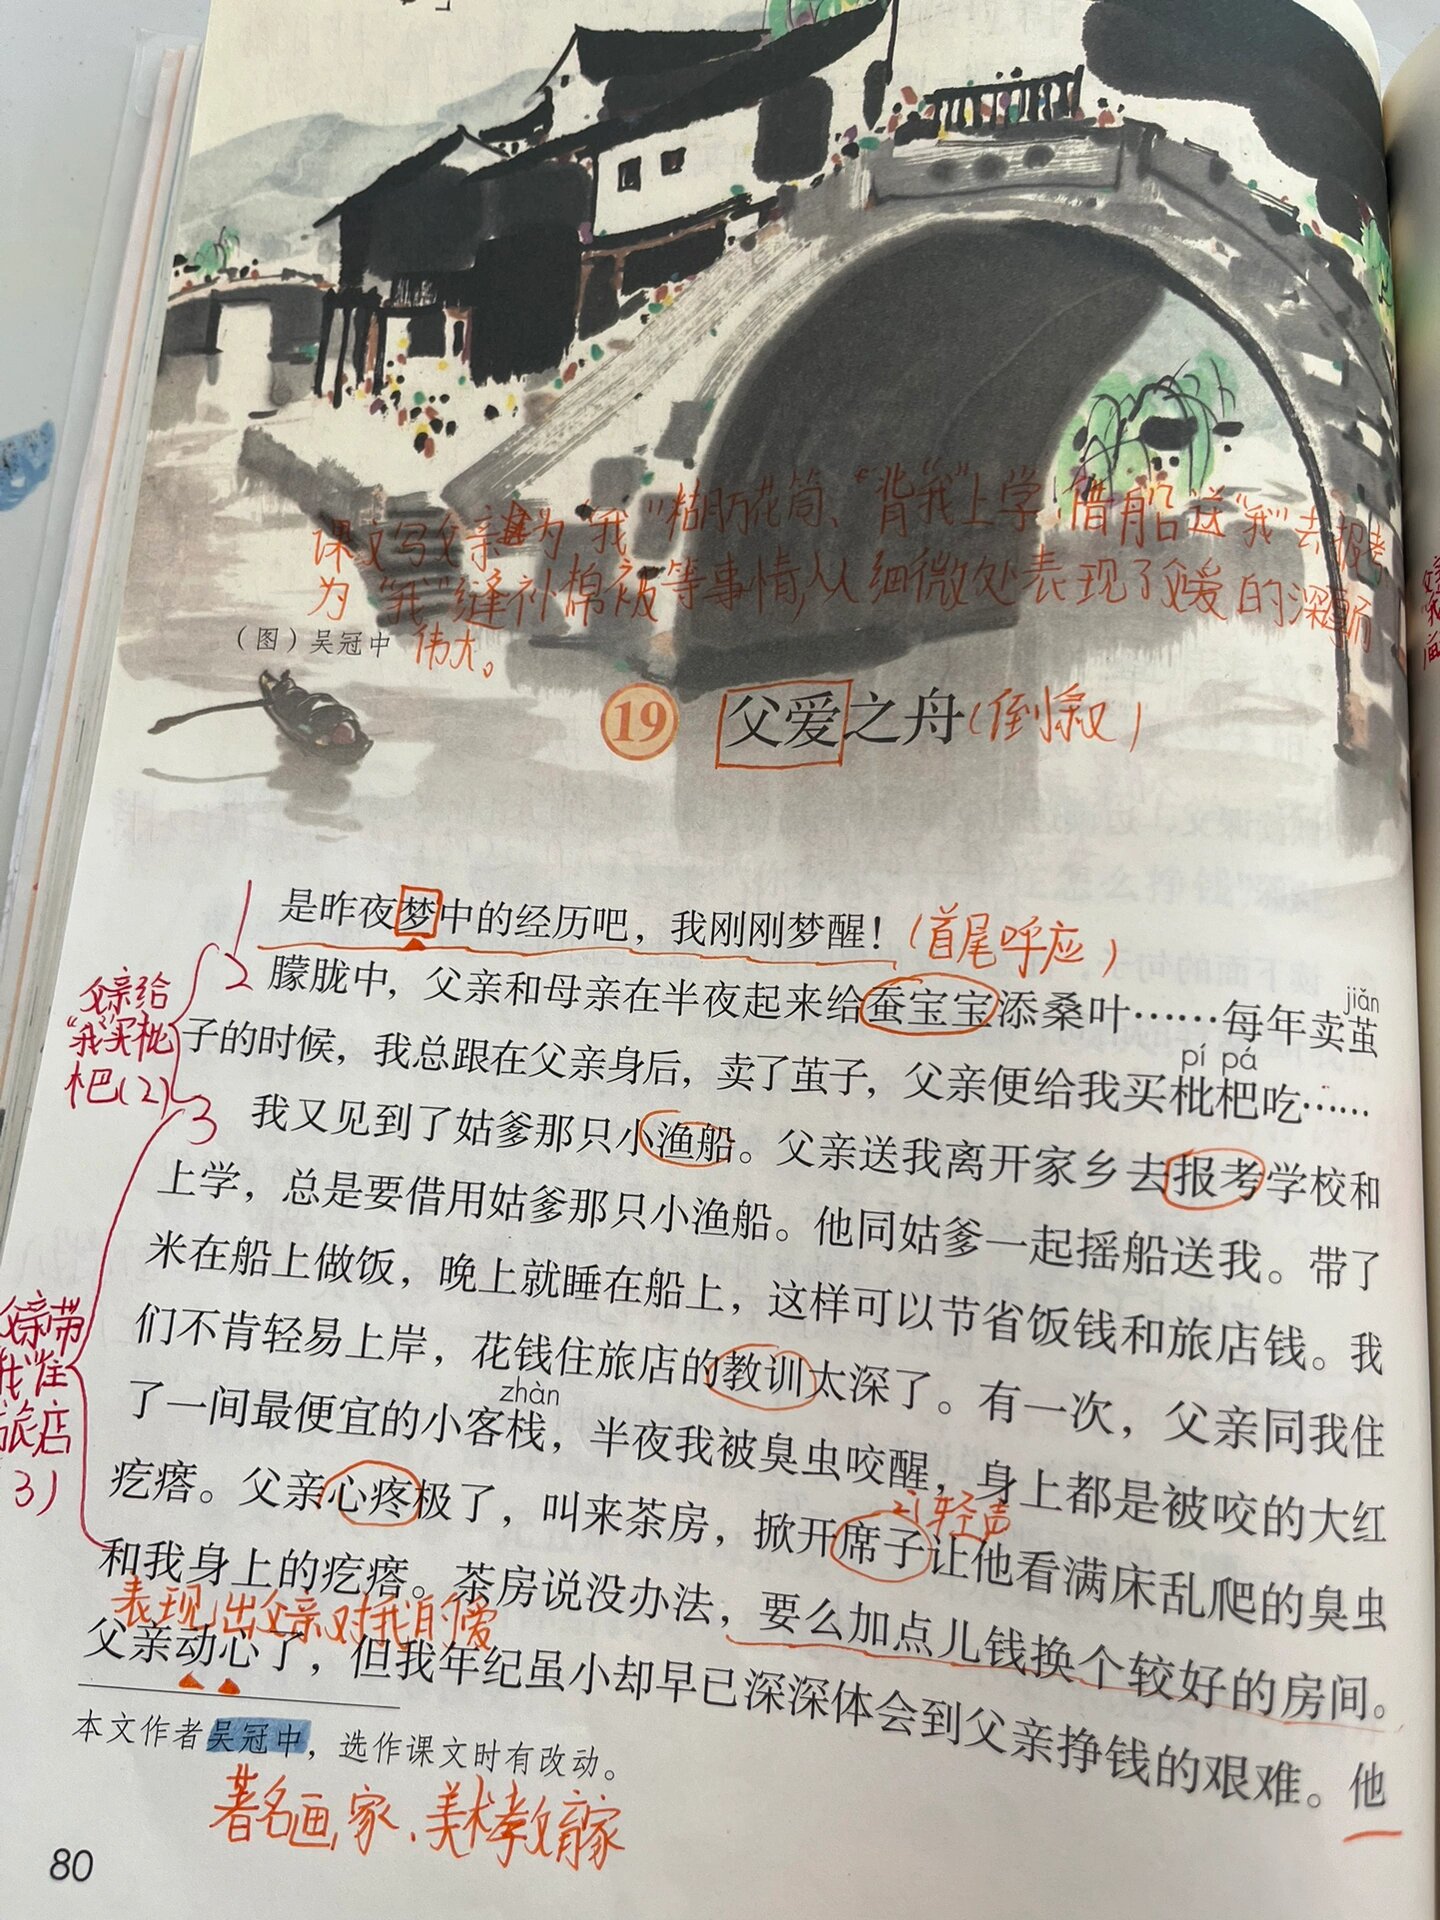 课文写父亲为“我”糊万花筒、“背我”上学、借船送“我”去报考
为“我”缝补棉被等事情,从细微处表现了父爱的深厚
(图)吴冠中 伟大。
19 父爱之舟(倒叙)
1 是昨夜梦中的经历吧,我刚刚梦醒!(首尾呼应)
2 朦胧中,父亲和母亲在半夜起来给蚕宝宝添桑叶……每年卖茧
jiǎn
父亲给
“我”买枇
杷(2)
子的时候,我总跟在父亲身后,卖了茧子,父亲便给我买枇杷吃……
pí pá
3 我又见到了姑爹那只小渔船。父亲送我离开家乡去报考学校和
上学,总是要借用姑爹那只小渔船。他同姑爹一起摇船送我。带了
米在船上做饭,晚上就睡在船上,这样可以节省饭钱和旅店钱。我
们不肯轻易上岸,花钱住旅店的教训太深了。有一次,父亲同我住
父亲带
“我”住
旅店
3)
zhàn
了一间最便宜的小客栈,半夜我被臭虫咬醒,身上都是被咬的大红
疙瘩。父亲心疼极了,叫来茶房,掀开席子让他看满床乱爬的臭虫
zi轻声
和我身上的疙瘩。茶房说没办法,要么加点儿钱换个较好的房间。
表现出父亲对我的爱
父亲动心了,但我年纪虽小却早已深深体会到父亲挣钱的艰难。他
本文作者吴冠中,选作课文时有改动。
著名画家、美术教育家
80